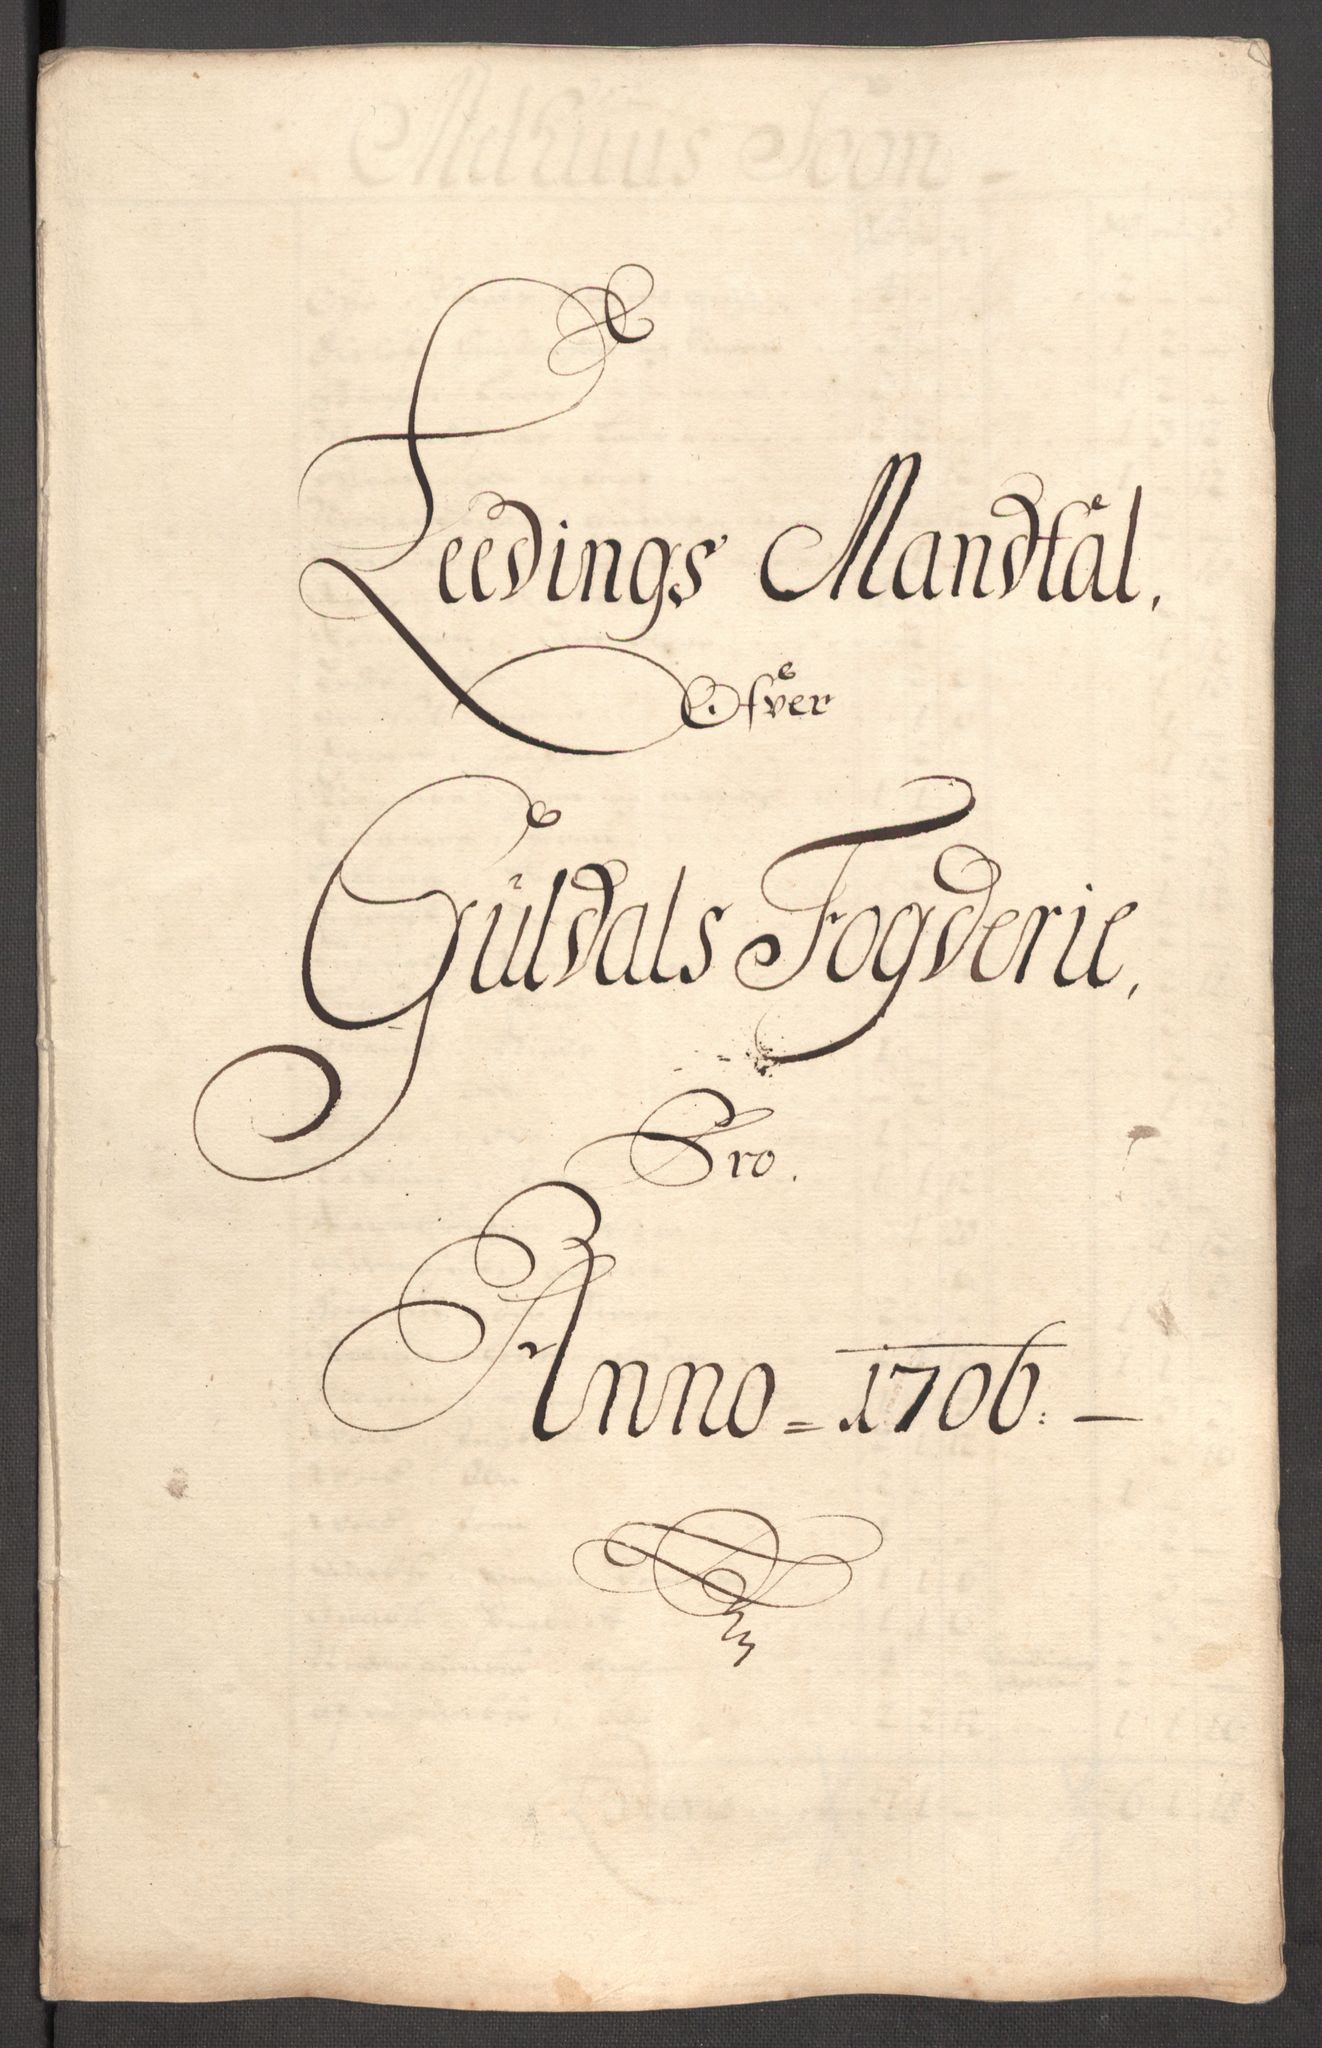 Leedings Mandtål.
Ofver
Güldals Fogderie,
Pro.
Anno = 1706. —